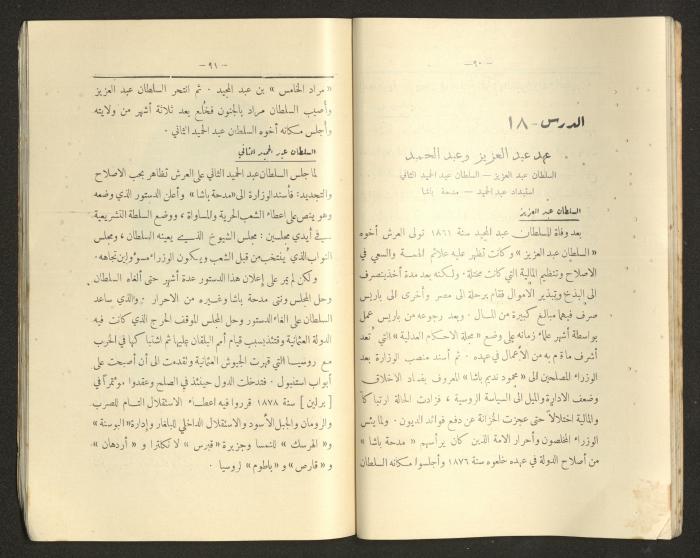 — ٩٠ —
الدرس - ١٨
عهد عبد العزيز وعبد الحميد
السلطان عبد العزيز — السلطان عبد الحميد الثاني
استبداد عبد الحميد — مدحة باشا
السلطان عبد العزيز
بعد وفاة السلطان عبد المجيد سنة ١٨٦١ تولى العرش أخوه
« السلطان عبد العزيز » وكانت تظهر عليه علائم الهمة والسعي في
الاصلاح وتنظيم المالية التي كانت مختلة ، ولكنه بعد مدة أخذ ينصرف
الى البذخ وتبذير الاموال فقام برحلة الى مصر وأخرى الى باريس
صرف فيهما مبالغ كبيرة من المال . وبعد رجوعه من باريس عمل
بواسطة أشهر علماء زمانه على وضع « مجلة الاحكام العدلية » التي تُعد
أشرف ما قام به من الأعمال في عهده . ثم أسند منصب الوزارة بعد
الوزراء المصلحين الى « محمود نديم باشا » المعروف بفساد الاخلاق
وضعف الادارة والميل الى السياسة الروسية ، فزادت الحالة ارتباكا
والمالية اختلالاً حتى عجزت الخزانة عن دفع فوائد الديون . ولما يئس
الوزراء المخلصون وأحرار الامة الذين كان يرأسهم « مدحة باشا »
من أصلاح الدولة في عهده خلعوه سنة ١٨٧٦ وأجلسوا مكانه السلطان
— ٩١ —
« مراد الخامس » بن عبد المجيد . ثم انتحر السلطان عبد العزيز
وأصيب السلطان مراد بالجنون فخُلع بعد ثلاثة أشهر من ولايته
وأجلس مكانه أخوه السلطان عبد الحميد الثاني .
السلطان عبد الحميد الثاني
لما جلس السلطان عبد الحميد الثاني على العرش تظاهر بحب الاصلاح
والتجديد : فأسند الوزارة الى « مدحة باشا » وأعلن الدستور الذي وضعه
وهو ينص على اعطاء الشعب الحرية والمساواة ، ووضع السلطة التشريعية
في أيدي مجلسين : مجلس الشيوخ الذي يعينه السلطان ، ومجلس
النواب الذي يُنتخب من قبل الشعب ويكون الوزراء مسؤولين تجاهه .
ولكن لم يمر على إعلان هذا الدستور عدة أشهر حتى ألغاه السلطان
وحل المجلس ونفى مدحة باشا وغيره من الاحرار . والذي ساعد
السلطان على الغاء الدستور وحل المجلس الموقف الحرج الذي كانت فيه
الدولة العثمانية وقتئذ بسبب قيام أمم البلقان عليها ثم اشتباكها في الحرب
مع روسيا التي قهرت الجيوش العثمانية وتقدمت الى أن أصبحت على
أبواب استنبول . فتدخلت الدول حينئذ في الصلح وعقدوا مؤتمراً في
[ برلين ] سنة ١٨٧٨ قرروا فيه اعطاء الاستقلال التام للصرب
والرومان والجبل الأسود والاستقلال الداخلي للبلغار وإدارة « البوسنة »
و« الهرسك » للنمسا وجزيرة « قبرس » لانكلترا و « أردهان »
و « قارص » و « باطوم » لروسيا .